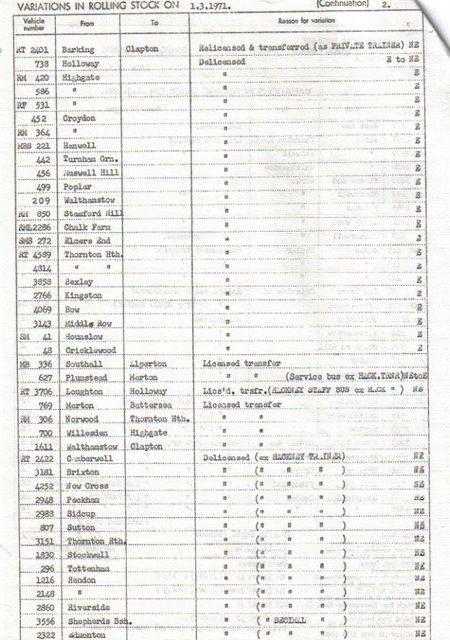 VARIATIONS IN ROLLING STOCK ON 1.3.1971. (Continuation) 2.
Vehicle number From To Reason for variation
RT 2401 Barking Clapton Relicensed & transferred (as PRIVATE TRAINER) NE
738 Holloway Delicensed E to NE
RM 420 Highgate " E
586 " " E
RF 531 " " E
452 Croydon " E
RM 364 " " E
MBS 221 Hanwell " E
442 Turnham Grn. " E
456 Muswell Hill " E
499 Poplar " E
209 Walthamstow " E
RM 850 Stamford Hill " E
RML2286 Chalk Farm " E
SMS 272 Elmers End " E
RT 4589 Thornton Hth. " E
4814 " " " E
3858 Bexley " E
2766 Kingston " E
4069 Bow " E
3143 Middle Row " E
SM 41 Hounslow " E
48 Cricklewood " E
MB 336 Southall Alperton Licensed transfer
627 Plumstead Merton " " (Service bus ex HACK.TRNR)NEtoE
RT 3706 Loughton Holloway Lics'd. trsfr.(HACKNEY STAFF BUS ex HACK " ) NE
769 Merton Battersea Licensed transfer
RM 306 Norwood Thornton Hth. " "
700 Willesden Highgate " "
1611 Walthamstow Clapton " "
RT 2422 Camberwell Delicensed (ex HACKNEY TRAINER) NE
3181 Brixton " ( " " " ) NE
4252 New Cross " ( " " " ) NE
2948 Peckham " ( " " " ) NE
2988 Sidcup " ( " " " ) NE
807 Sutton " ( " " " ) NE
3151 Thornton Hth. " ( " " " ) NE
1830 Stockwell " ( " " " ) NE
296 Tottenham " ( " " " ) NE
1216 Hendon " ( " " " ) NE
2148 " " ( " " " ) NE
2860 Riverside " ( " " " ) NE
3556 Shepherds Bsh. " ( " DECIMAL " ) NE
2322 Edmonton " ( " " " ) NE